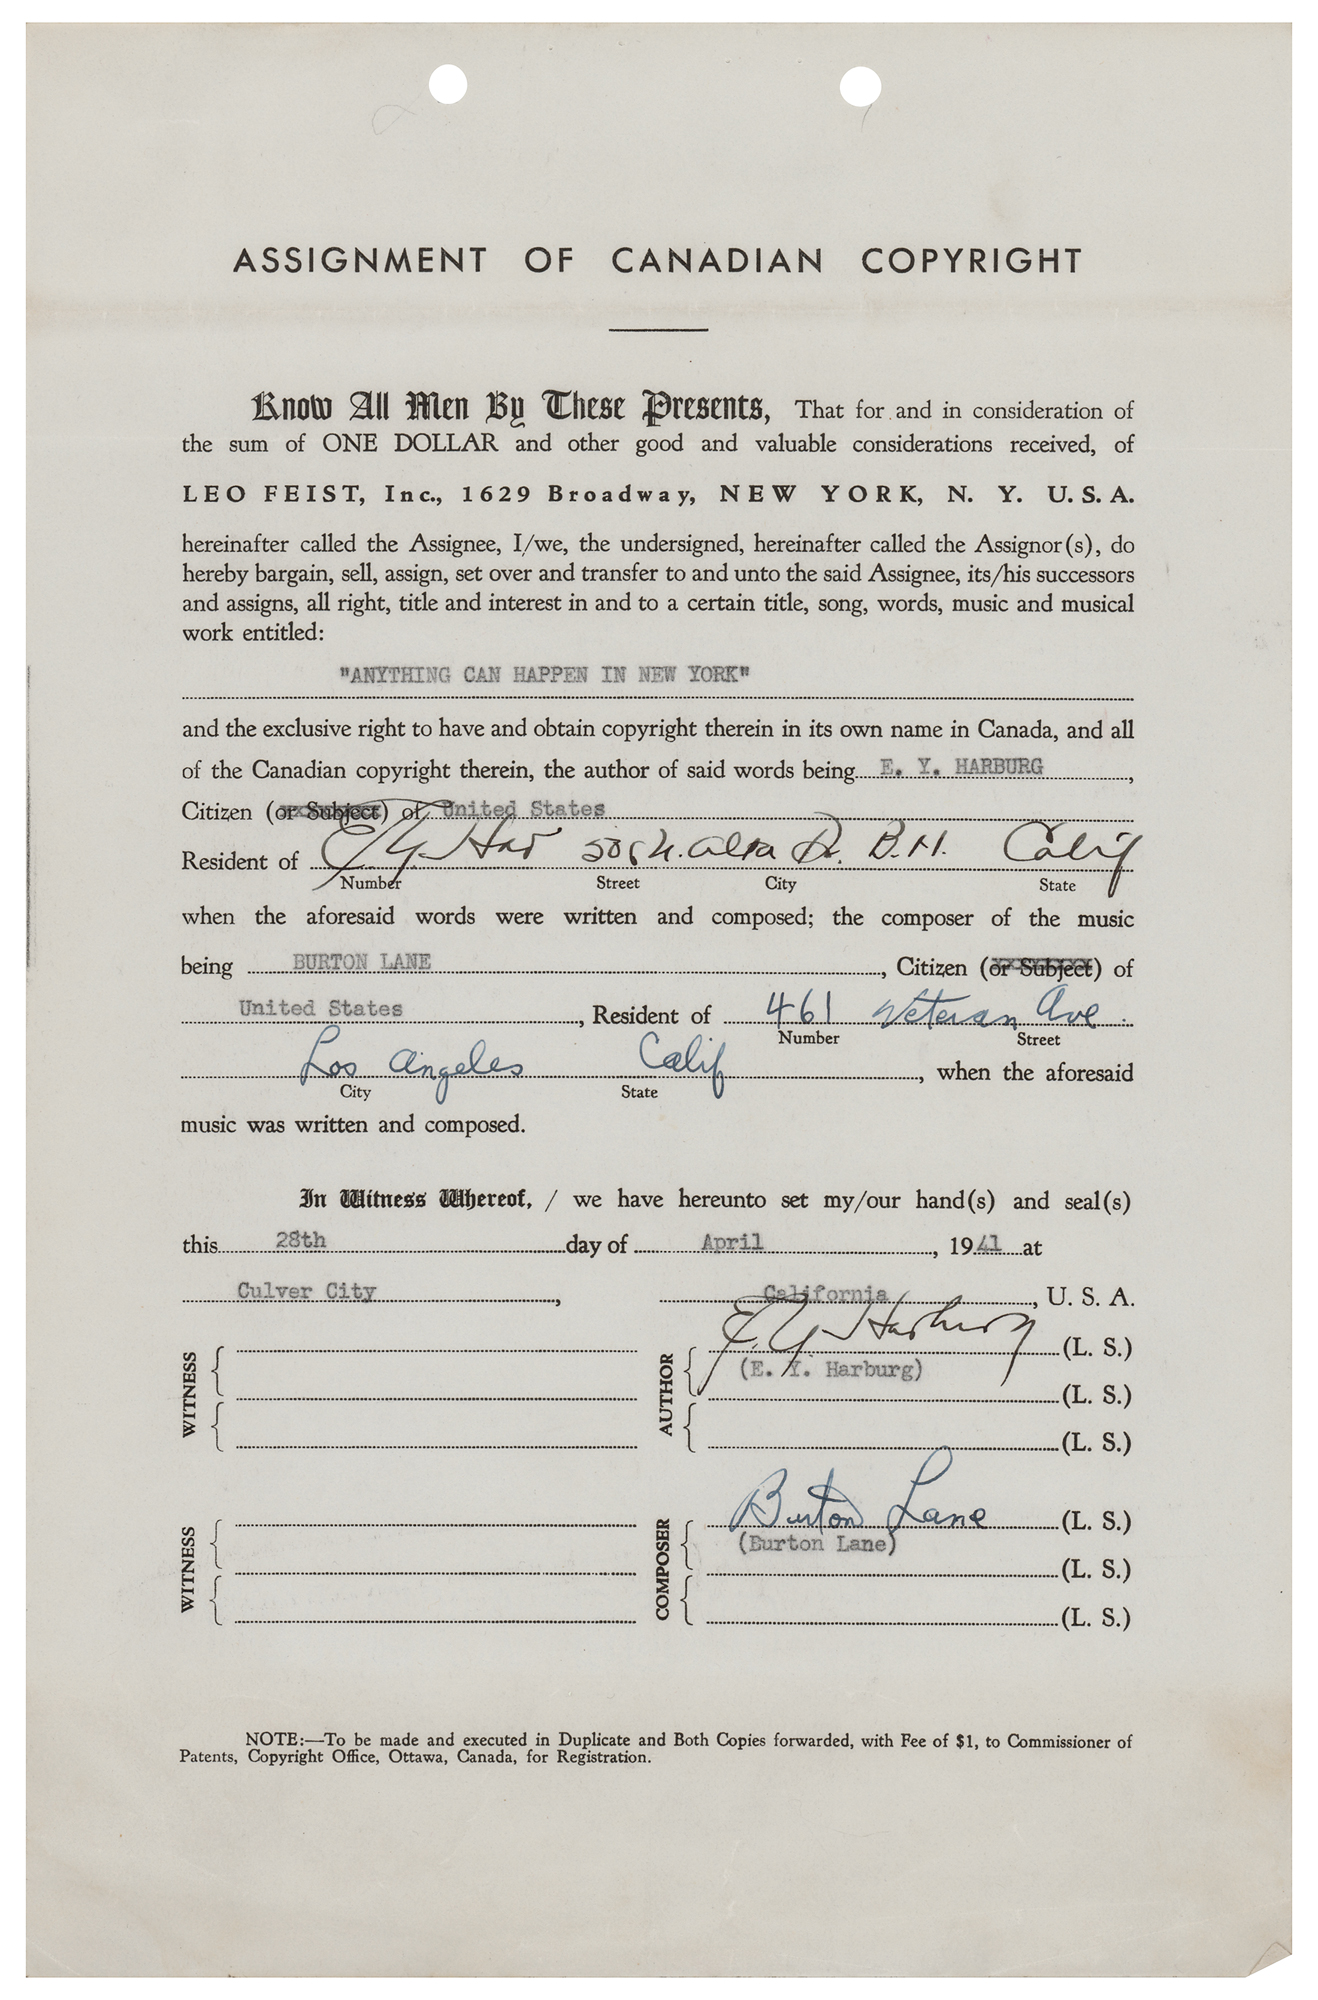 ASSIGNMENT OF CANADIAN COPYRIGHT
Know All Men By These Presents, That for and in consideration of
the sum of ONE DOLLAR and other good and valuable considerations received, of
LEO FEIST, Inc., 1629 Broadway, NEW YORK, N. Y. U. S. A.
hereinafter called the Assignee, I/we, the undersigned, hereinafter called the Assignor(s), do
hereby bargain, sell, assign, set over and transfer to and unto the said Assignee, its/his successors
and assigns, all right, title and interest in and to a certain title, song, words, music and musical
work entitled:
"ANYTHING CAN HAPPEN IN NEW YORK"
and the exclusive right to have and obtain copyright therein in its own name in Canada, and all
of the Canadian copyright therein, the author of said words being E. Y. HARBURG,
Citizen (or Subject) of United States
Resident of E Y Har Dr. B.H. Calif
Number Street City State
when the aforesaid words were written and composed; the composer of the music
being BURTON LANE, Citizen (or Subject) of
United States, Resident of 461 Veteran Ave.
Number Street
Los Angeles Calif, when the aforesaid
City State
music was written and composed.
In Witness Whereof, / we have hereunto set my/our hand(s) and seal(s)
this 28th day of April, 1941 at
Culver City, California, U. S. A.
E. Y. Harburg (L. S.)
(E. Y. Harburg)
WITNESS AUTHOR (L. S.)
(L. S.)
Burton Lane (L. S.)
(Burton Lane)
WITNESS COMPOSER (L. S.)
(L. S.)
NOTE:—To be made and executed in Duplicate and Both Copies forwarded, with Fee of $1, to Commissioner of
Patents, Copyright Office, Ottawa, Canada, for Registration.